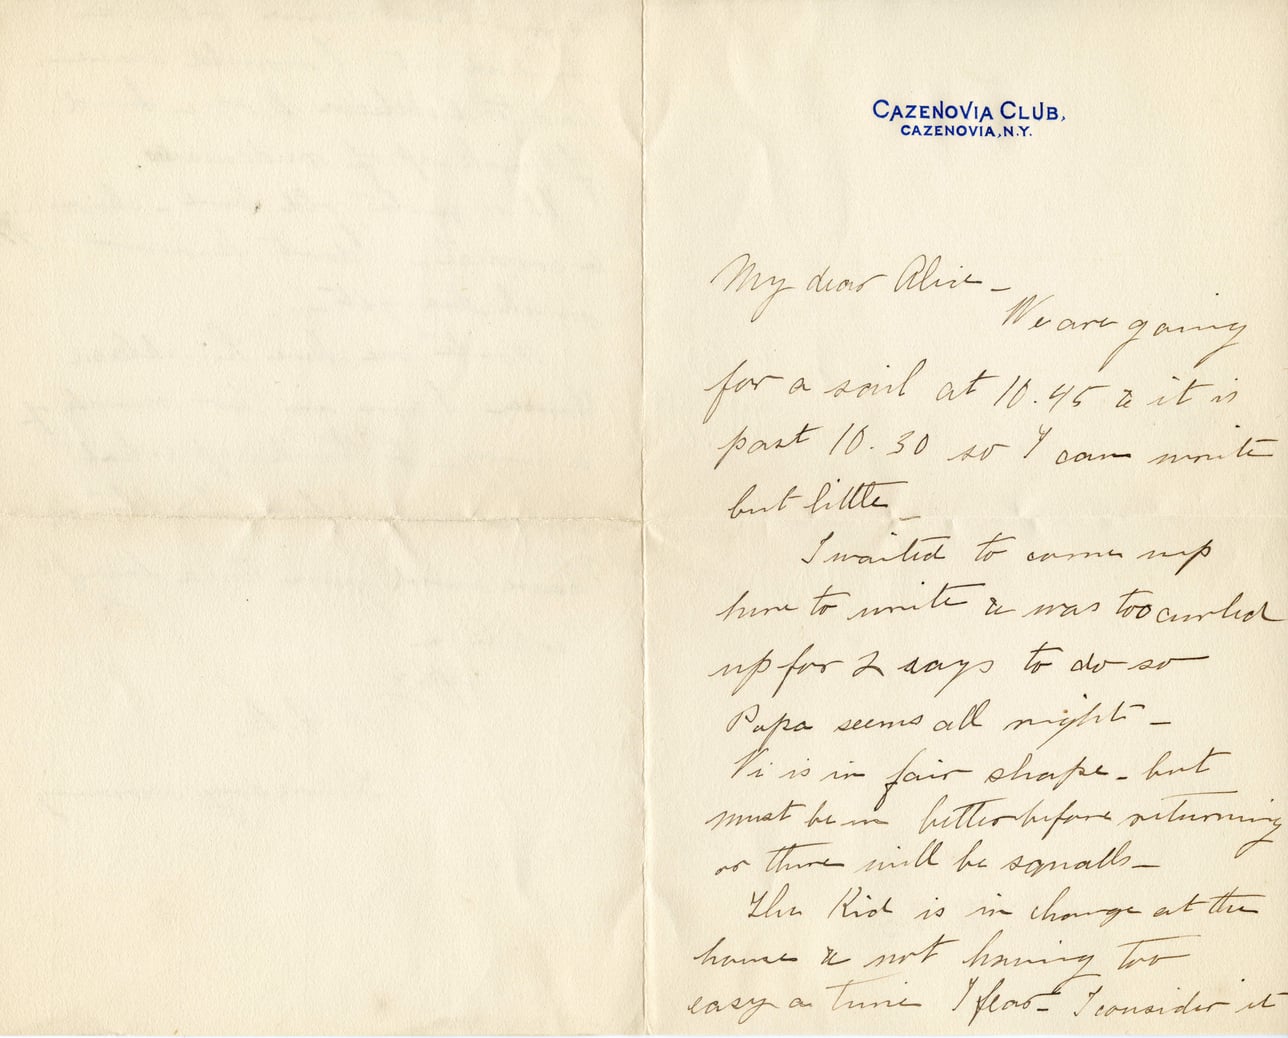 CAZENOVIA CLUB,
CAZENOVIA, N.Y.
My dear Alice –
We are going
for a sail at 10.45 & it is
past 10.30 so I can write
but little –
I waited to come up
here to write & was too curled
up for 2 days to do so
Papa seems all right –
Vi is in fair shape – but
must be in better before returning
or there will be squalls –
The Kid is in charge at the
house & not having too
easy a time I fear – I consider it